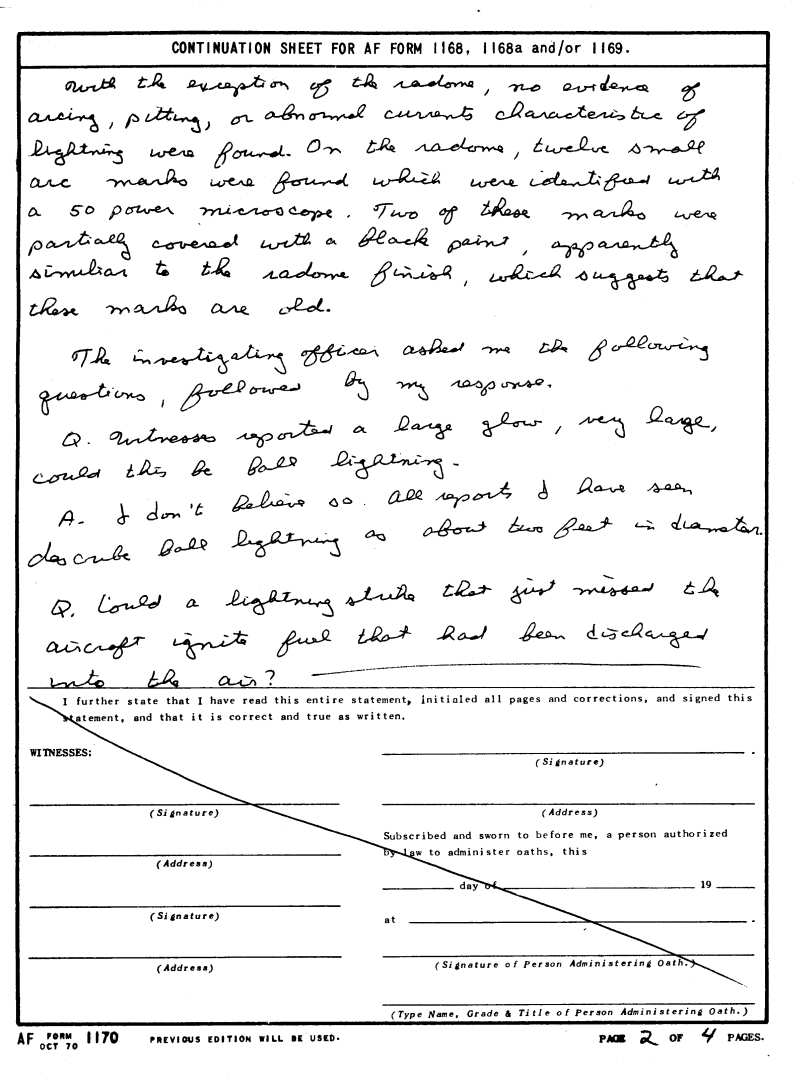 CONTINUATION SHEET FOR AF FORM 1168, 1168a and/or 1169.
with the exception of the radome, no evidence of
arcing, pitting, or abnormal currents characteristic of
lightning were found. On the radome, twelve small
arc marks were found which were identified with
a 50 power microscope. Two of these marks were
partially covered with a black paint, apparently
similiar to the radome finish, which suggests that
these marks are old.
The investigating officer asked me the following
questions, followed by my response.
Q. Witnesses reported a large glow, very large,
could this be ball lightning.
A. I don't believe so. All reports I have seen
describe ball lightning as about two feet in diameter.
Q. Could a lightning strike that just missed the
aircraft ignite fuel that had been discharged
into the air?
I further state that I have read this entire statement, initialed all pages and corrections, and signed this
statement, and that it is correct and true as written.
WITNESSES:
(Signature)
(Signature)
(Address)
Subscribed and sworn to before me, a person authorized
by law to administer oaths, this
(Address)
day of 19
(Signature)
at
(Address)
(Signature of Person Administering Oath.)
(Type Name, Grade & Title of Person Administering Oath.)
AF FORM OCT 70 1170 PREVIOUS EDITION WILL BE USED. PAGE 2 OF 4 PAGES.